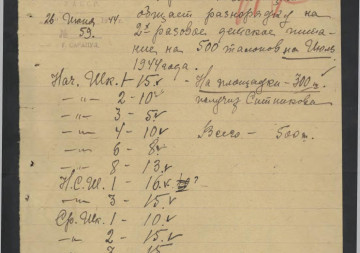 26 Июня 44г.
№ 59.
общает разнорядку на
2х разовое детское пита-
ние на 500 талонов на Июль
1944 года.
Нач. Шк. 1 - 15
На площадки - 300
—„— 2 - 10
получ. Ситникова
—„— 3 - 5
—„— 4 - 10
Всего - 500
—„— 6 - 8
—„— 8 - 13
Н.С.Ш. 1 - 16
—„— 3 - 15
Ср. Шк. 1 - 10
—„— 2 - 15
—„— 3 - 15